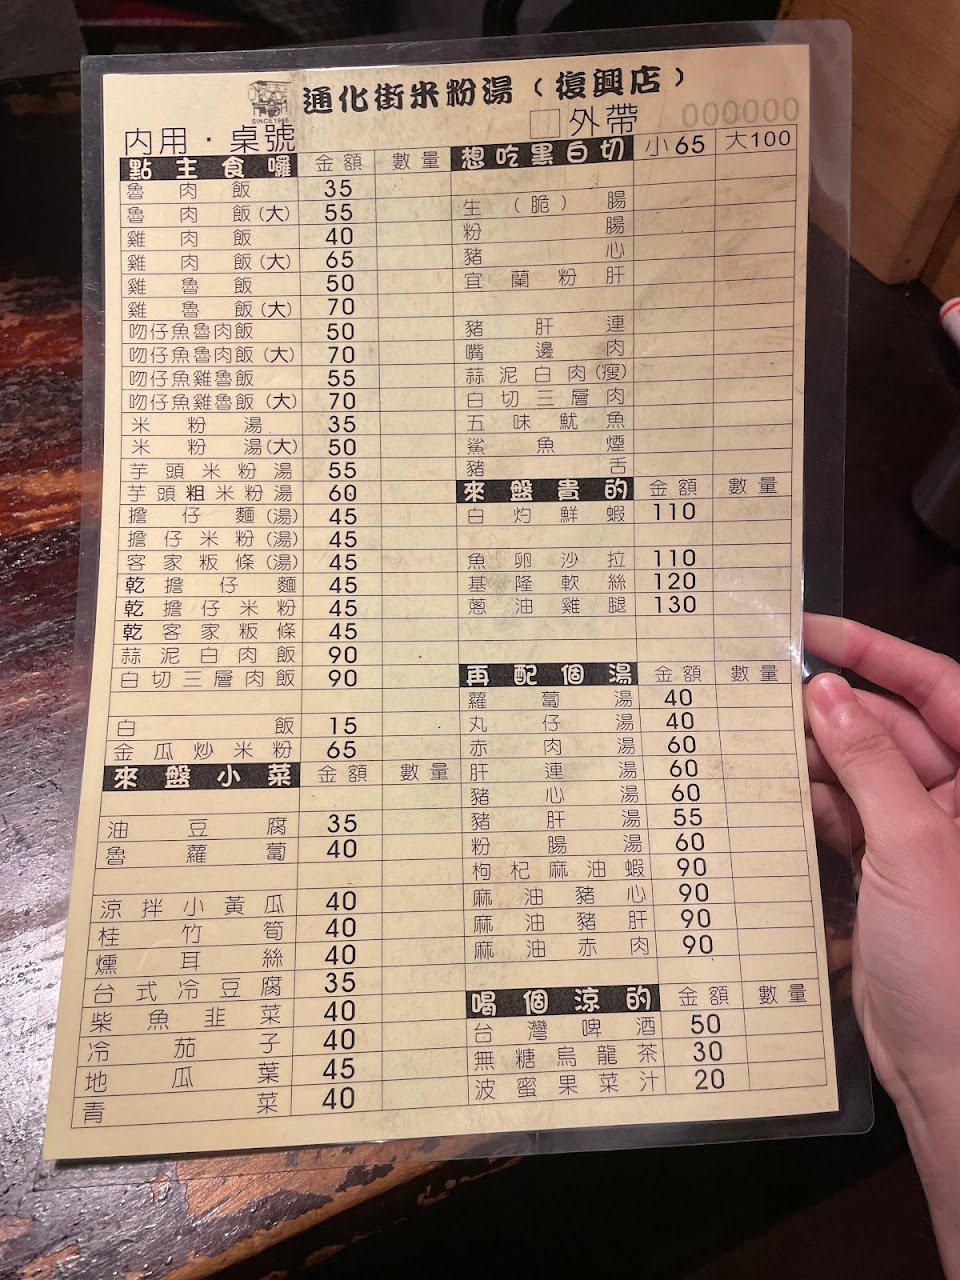 通化街米粉湯（復興店）
SINCE1966
000000
內用・桌號
□外帶
點主食囉 金額 數量
魯肉飯 35
魯肉飯(大) 55
雞肉飯 40
雞肉飯(大) 65
雞魯飯 50
雞魯飯(大) 70
吻仔魚魯肉飯 50
吻仔魚魯肉飯(大) 70
吻仔魚雞魯飯 55
吻仔魚雞魯飯(大) 70
米粉湯 35
米粉湯(大) 50
芋頭米粉湯 55
芋頭粗米粉湯 60
擔仔麵(湯) 45
擔仔米粉(湯) 45
客家粄條(湯) 45
乾擔仔麵 45
乾擔仔米粉 45
乾客家粄條 45
蒜泥白肉飯 90
白切三層肉飯 90
白飯 15
金瓜炒米粉 65
來盤小菜 金額 數量
油豆腐 35
魯蘿蔔 40
涼拌小黃瓜 40
桂竹筍 40
燻耳絲 40
台式冷豆腐 35
柴魚韭菜 40
冷茄子 40
地瓜葉 45
青菜 40
想吃黑白切 小65 大100
生(脆)腸
粉腸
豬心
宜蘭粉肝
豬肝連
嘴邊肉
蒜泥白肉(瘦)
白切三層肉
五味魷魚
鯊魚煙
豬舌
來盤貴的 金額 數量
白灼鮮蝦 110
魚卵沙拉 110
基隆軟絲 120
蔥油雞腿 130
再配個湯 金額 數量
蘿蔔湯 40
丸仔湯 40
赤肉湯 60
肝連湯 60
豬心湯 60
豬肝湯 55
粉腸湯 60
枸杞麻油蝦 90
麻油豬心 90
麻油豬肝 90
麻油赤肉 90
喝個涼的 金額 數量
台灣啤酒 50
無糖烏龍茶 30
波蜜果菜汁 20